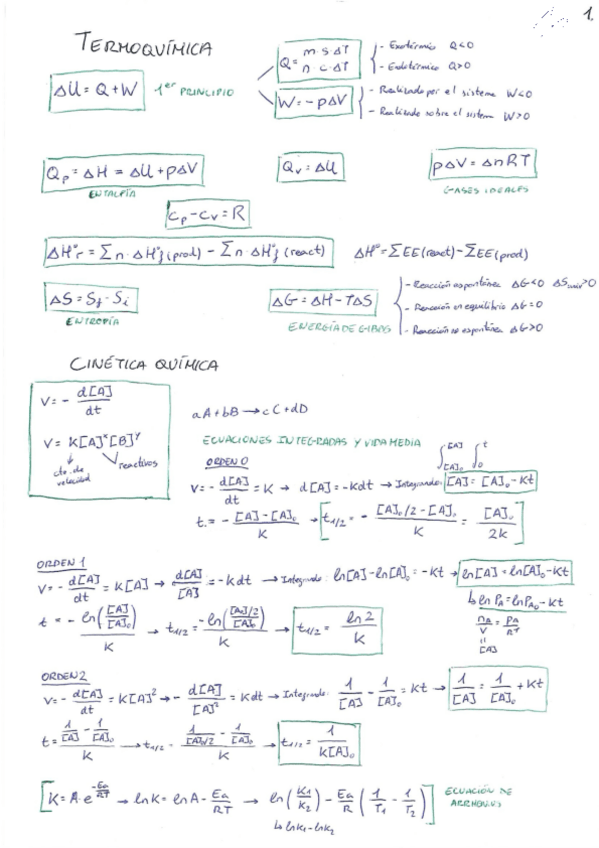 1.
TERMOQUÍMICA
ΔU = Q + W 1er PRINCIPIO
Q = m·s·ΔT
n·c·ΔT
- Exotérmico Q<0
- Endotérmico Q>0
W = -pΔV
- Realizado por el sistema W<0
- Realizado sobre el sistema W>0
Qp = ΔH = ΔU + pΔV
ENTALPÍA
Qv = ΔU
pΔV = ΔnRT
GASES IDEALES
Cp - Cv = R
ΔH°r = Σn·ΔH°f (prod) - Σn·ΔH°f (react) ΔH° = ΣEE(react) - ΣEE(prod)
ΔS = Sf - Si
ENTROPÍA
ΔG = ΔH - TΔS
ENERGÍA DE GIBBS
- Reacción espontánea ΔG<0 ΔSuniv>0
- Reacción en equilibrio ΔG=0
- Reacción no espontánea ΔG>0
CINÉTICA QUÍMICA
V = - d[A]/dt
V = K[A]^x[B]^y
cte. de velocidad
reactivos
aA + bB → cC + dD
ECUACIONES INTEGRADAS Y VIDA MEDIA
∫[A]₀^[A] ∫0^t
ORDEN 0
V = - d[A]/dt = K → d[A] = -Kdt → Integrando: [A] = [A]₀ - Kt
t = - [A]-[A]₀/K → t1/2 = - [A]₀/2 - [A]₀/K = [A]₀/2k
ORDEN 1
V = - d[A]/dt = K[A] → d[A]/[A] = -Kdt → Integrando: ln[A] - ln[A]₀ = -Kt → ln[A] = ln[A]₀ - Kt
↳ ln PA = ln PA₀ - Kt
nA/V = PA/RT
=
[A]
t = - ln([A]/[A]₀)/K → t1/2 = -ln([A]/2/[A]₀)/K → t1/2 = ln 2/K
ORDEN 2
V = - d[A]/dt = K[A]² → - d[A]/[A]² = Kdt → Integrando: 1/[A] - 1/[A]₀ = Kt → 1/[A] = 1/[A]₀ + Kt
t = 1/[A] - 1/[A]₀/K → t1/2 = 1/[A]/2 - 1/[A]₀/K → t1/2 = 1/K[A]₀
[K = A·e^-Ea/RT → ln K = ln A - Ea/RT → ln(K1/K2) - Ea/R (1/T1 - 1/T2)] ECUACIÓN DE
ARRHENIUS
↳ lnK1 - lnK2